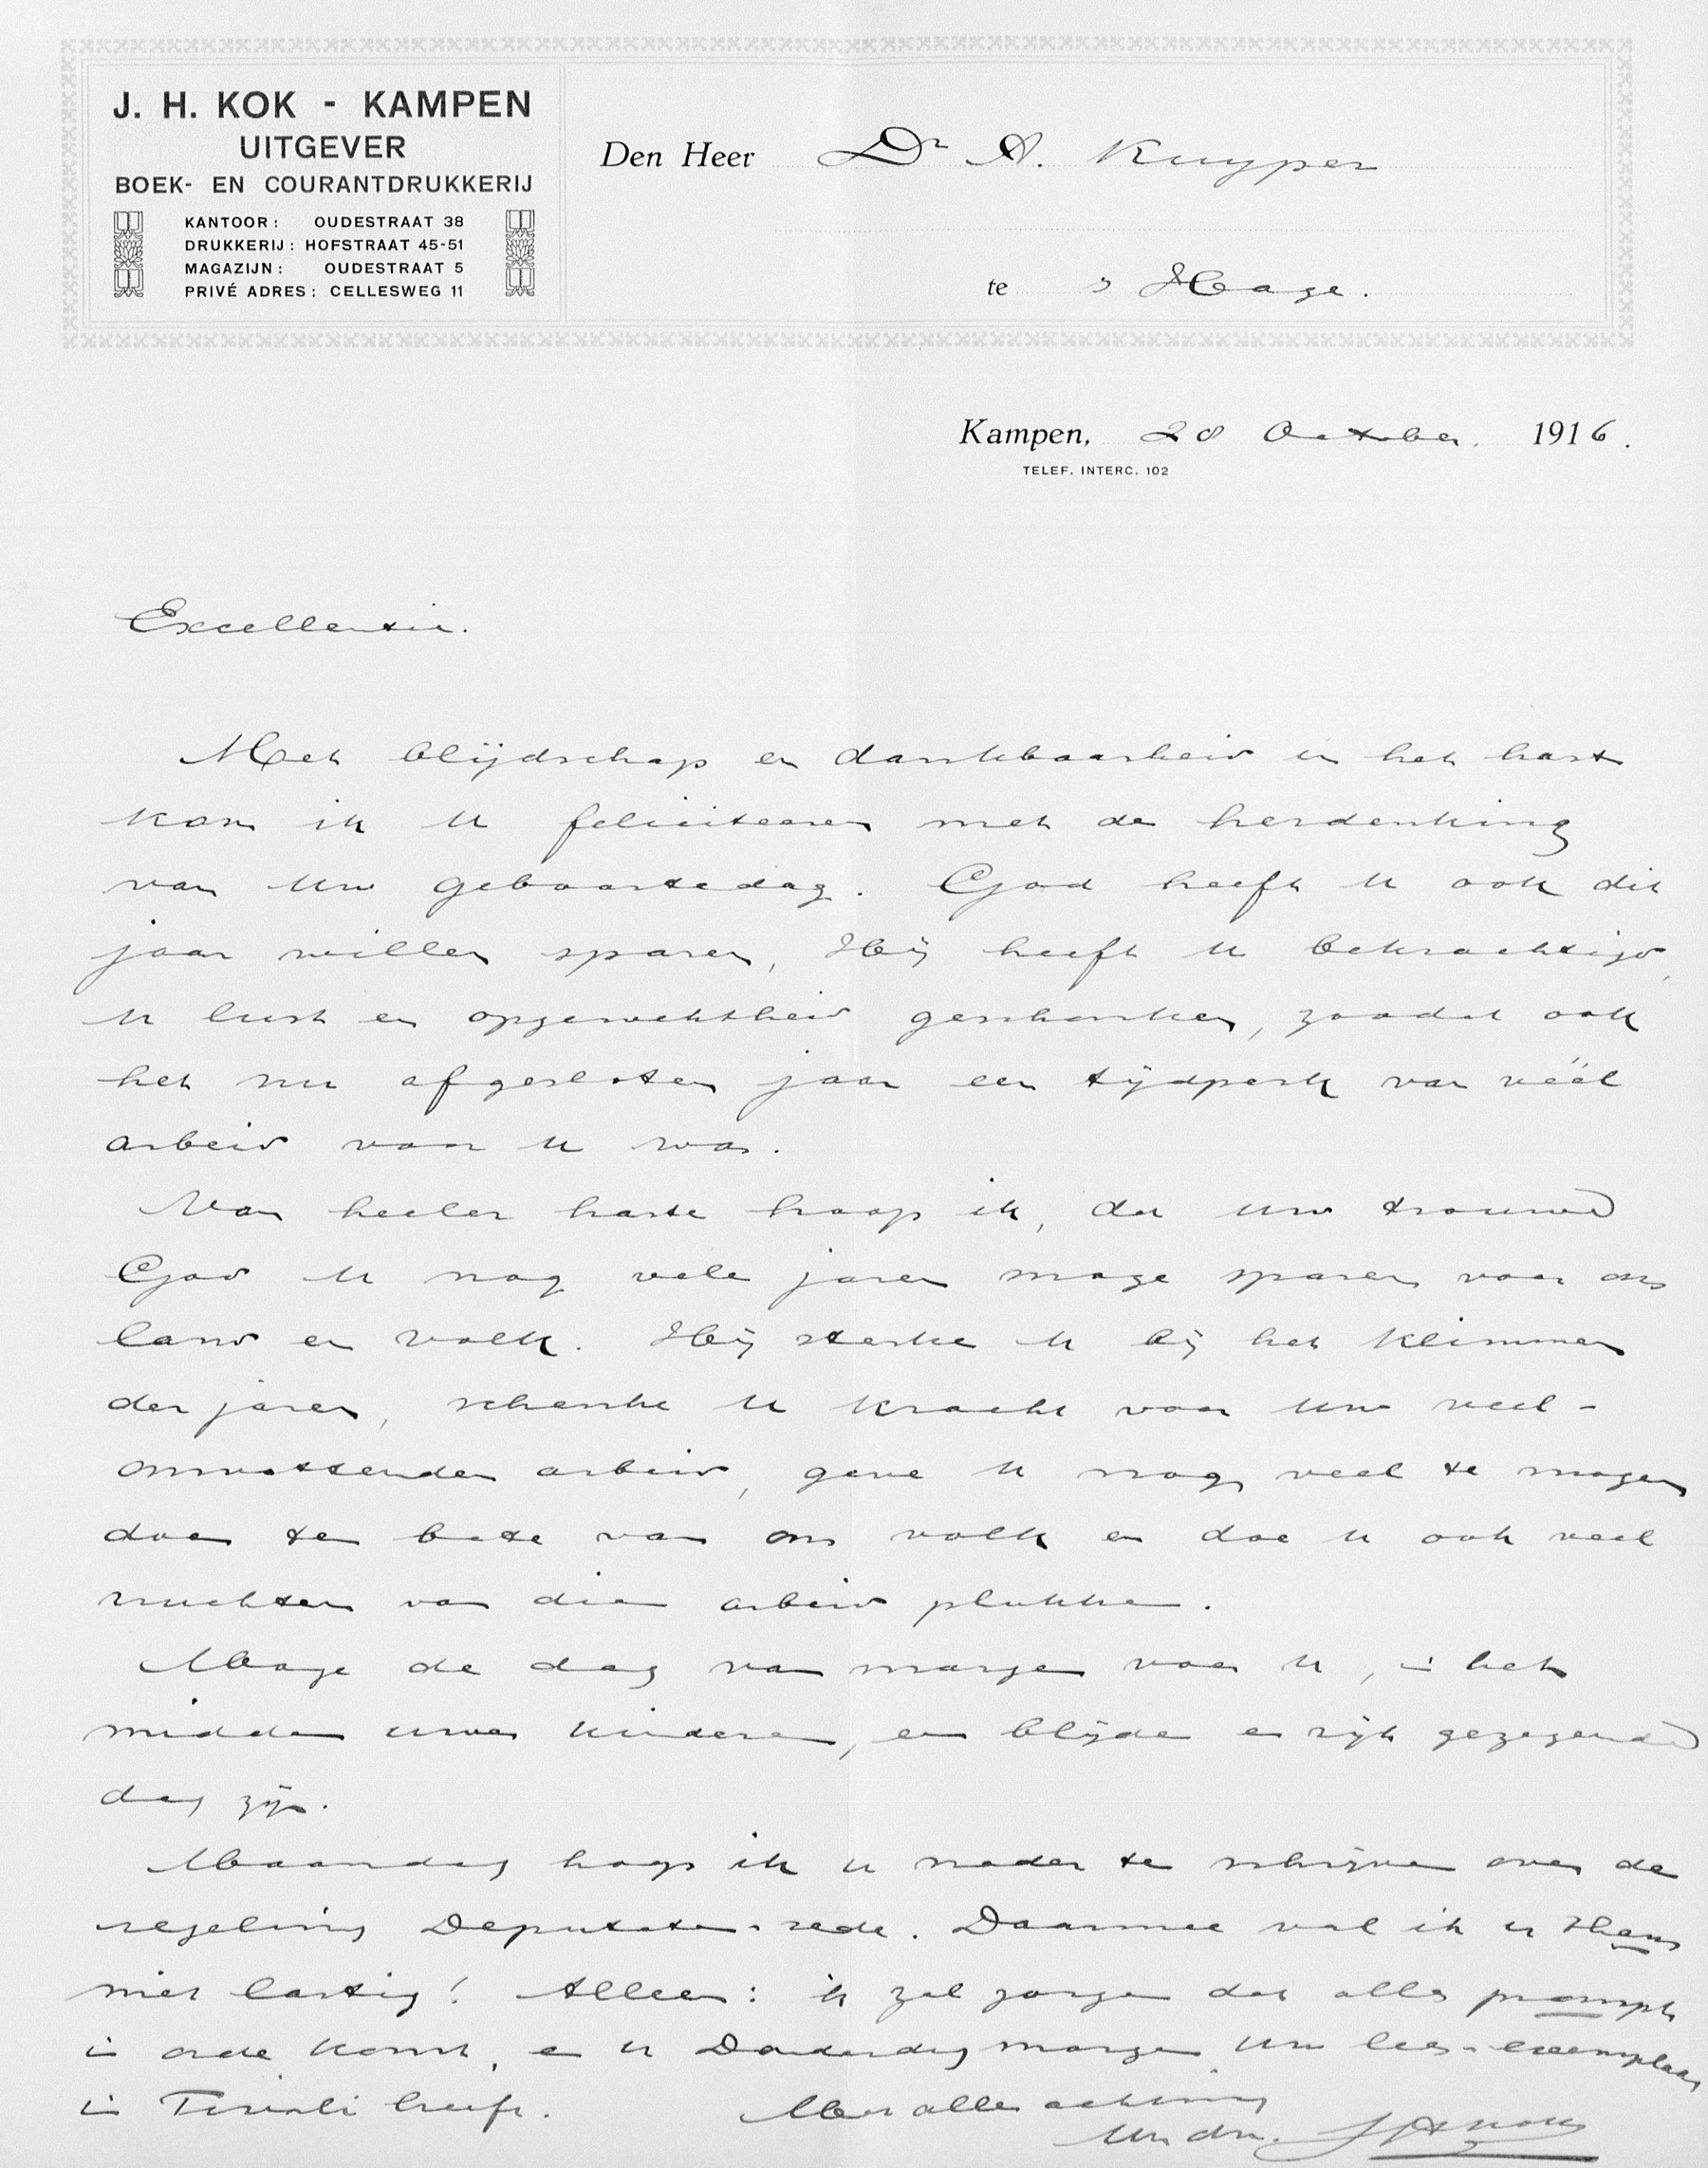 J. H. KOK - KAMPEN
UITGEVER
BOEK- EN COURANTDRUKKERIJ
KANTOOR: OUDESTRAAT 38
DRUKKERIJ: HOFSTRAAT 45-51
MAGAZIJN: OUDESTRAAT 5
PRIVÉ ADRES: CELLESWEG 11
Den Heer Dr A. Kuyper
te 's Hage.
Kampen, 28 October 1916.
TELEF. INTERC. 102
Excellentie.
Met blijdschap en dankbaarheid in het hart
kan ik U feliciteeren met de herdenking
van Uw geboortedag. God heeft U ook dit
jaar willen sparen, Hij heeft U bekrachtigd,
U lust en opgewektheid geschonken, zoodat ook
het nu afgesloten jaar een tijdperk van véél
arbeid voor U was.
Van heeler harte hoop ik, dat Uw trouwe
God U nog vele jaren moge sparen voor ons
land en volk. Hij sterke U bij het klimmen
der jaren, schenke U kracht voor Uw veel-
omvattenden arbeid, geve U nog veel te mogen
doen ten bate van ons volk en doe U ook veel
vruchten van dien arbeid plukken.
Moge de dag van morgen voor U, in het
midden uwer kinderen, een blijde en rijk gezegende
dag zijn.
Maandag hoop ik U nader te schrijven over de
regeling Deputaten-rede. Daarmee val ik U thans
niet lastig! Alleen: ik zal zorgen dat alles prompt
in orde komt, en U Donderdag morgen Uw lees-exemplaar
in Tivoli heeft.
Met alle achting
Uw dw. JHKok